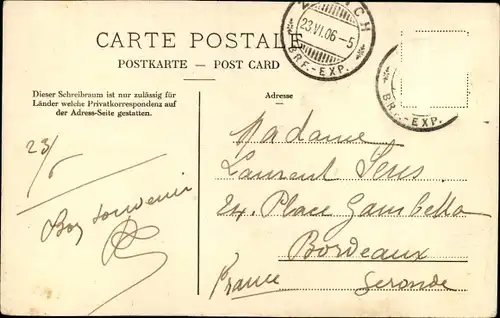 CARTE POSTALE
POSTKARTE — POST CARD
23.VI.06-5
BRF.-EXP.
BRF.-EXP.
Dieser Schreibraum ist nur zulässig für
Länder welche Privatkorrespondenz auf
der Adress-Seite gestatten.
Adresse
23/6
Bon souvenir
Madame
Laurent Sens
24, Place Gambetta
Bordeaux
France Gironde